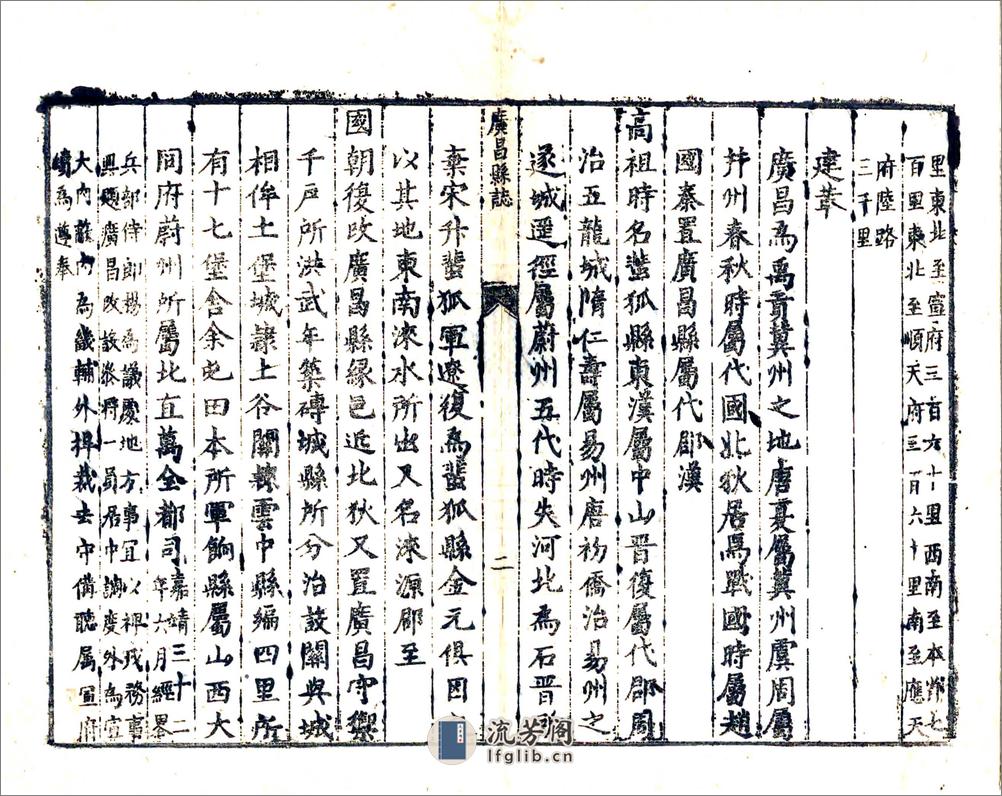 里東北至宣府三百六十里西南至本府七
百里東北至順天府三百六十里南至應天
府陸路
三千里
建革
廣昌為禹貢冀州之地唐夏屬冀州虞周屬
并州春秋時屬代國北狄居焉戰國時屬趙
國秦置廣昌縣屬代郡漢
高祖時名蜚狐縣東漢屬中山晉復屬代郡周
治五龍城隋仁壽屬易州唐初僑治易州之
遂城遥徑屬蔚州五代時失河北為石晉所
廣昌縣誌
二
棄宋升蜚狐軍遼復為蜚狐縣金元俱因之
以其地東南淶水所出又名淶源郡至
國朝復改廣昌縣緣邑近北狄又置廣昌守禦
千戶所洪武年築磚城縣所分治設關與城
相侔土堡城隸上谷關轄雲中縣編四里所
有十七堡舍余屯田本所軍餉縣屬山西大
同府蔚州所屬北直萬全都司嘉靖三十二
年六月經畧
兵部侍郎楊為議處地方事宜以裨戎務事
具題廣昌改設叅將一員居中調度外為宣
大內龍內為畿輔外捍裁去守備聽属宣府
續為遵奉
流芳阁
lfglib.cn